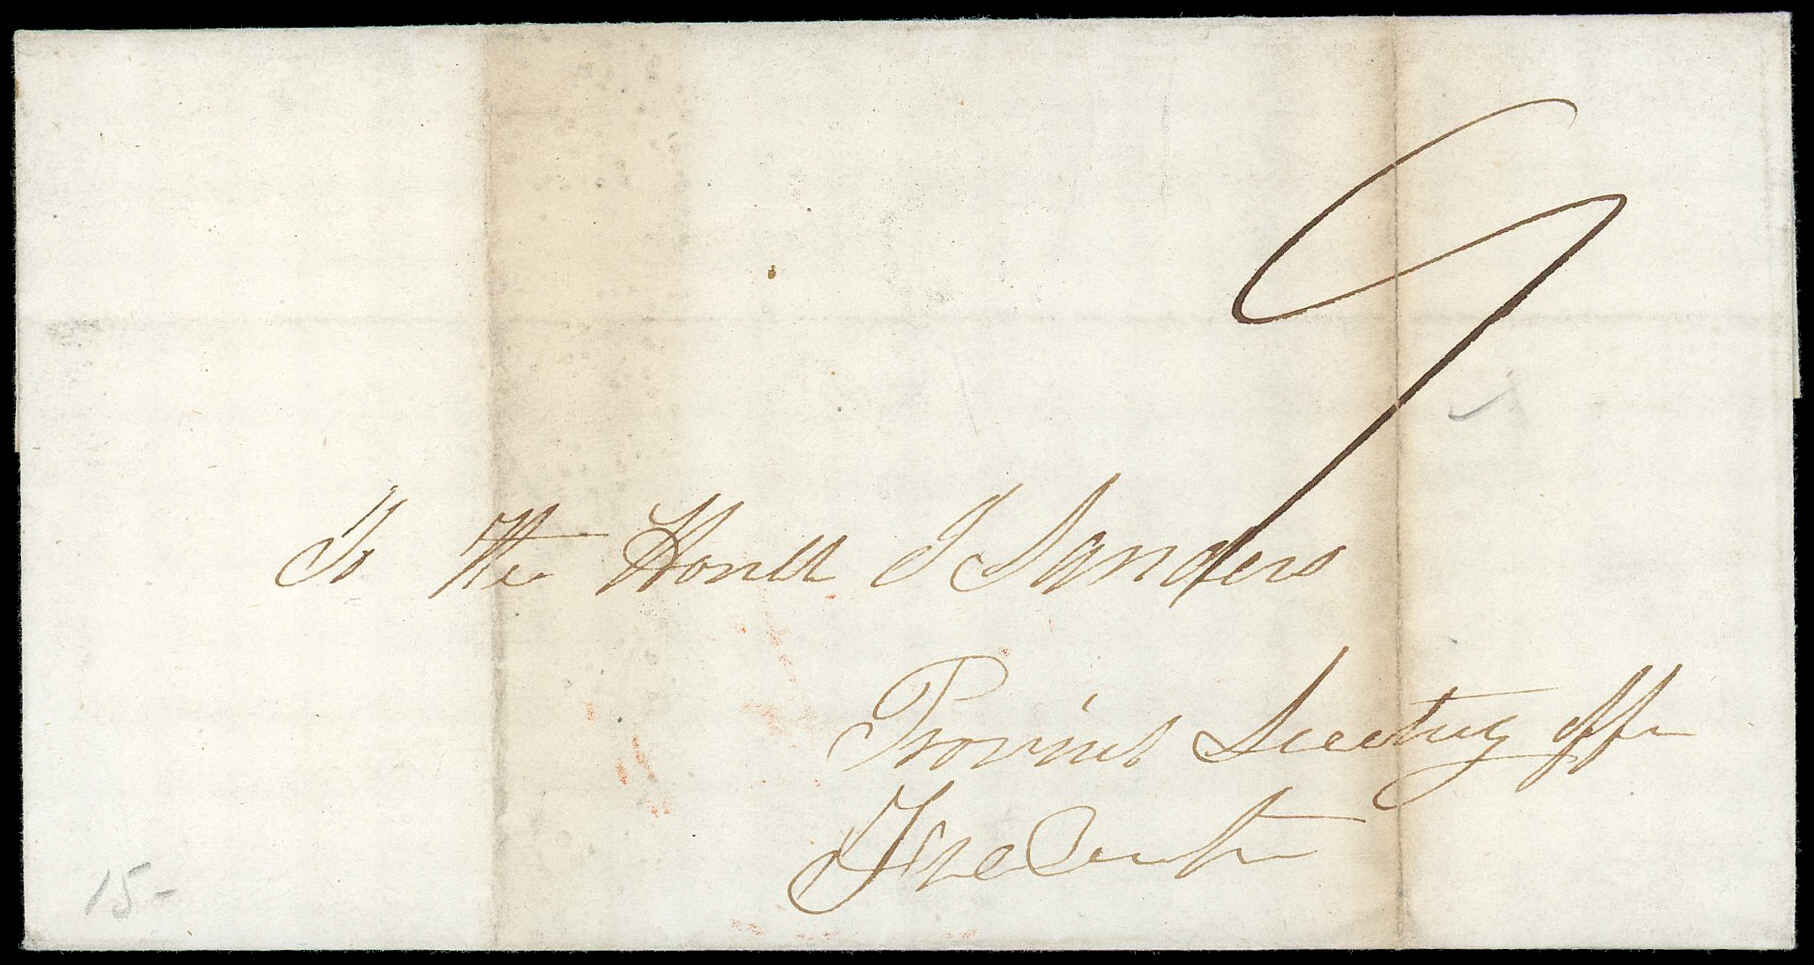 9
To the Honble J Sanders
Provins Secetrey offe
Fredericton
15-